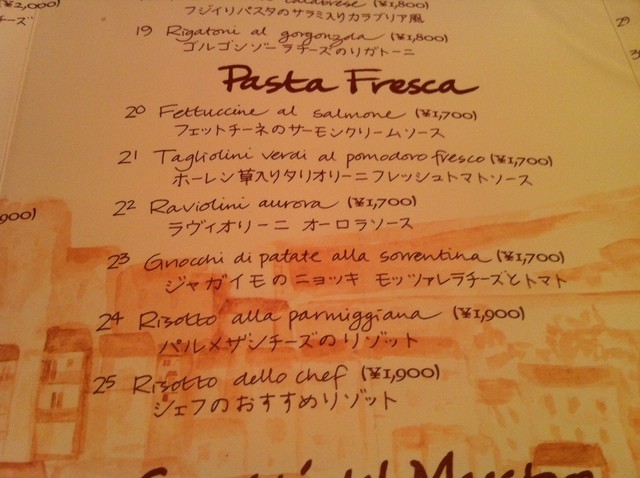 ¥2,000)
(¥1,800)
フジイリパスタのサラミ入りカラブリア風
19 Rigatoni al gorgonzola (¥1,800)
ゴルゴンゾーラチーズのリガトーニ
Pasta Fresca
20 Fettuccine al salmone (¥1,700)
フェットチーネのサーモンクリームソース
21 Tagliolini verdi al pomodoro fresco (¥1,700)
ホーレン草入りタリオリーニフレッシュトマトソース
22 Raviolini aurora (¥1,700)
ラヴィオリーニ オーロラソース
900)
23 Gnocchi di patate alla sorrentina (¥1,700)
ジャガイモのニョッキ モッツァレラチーズとトマト
24 Risotto alla parmiggiana (¥1,900)
パルメザンチーズのリゾット
25 Risotto dello chef (¥1,900)
シェフのおすすめリゾット
29